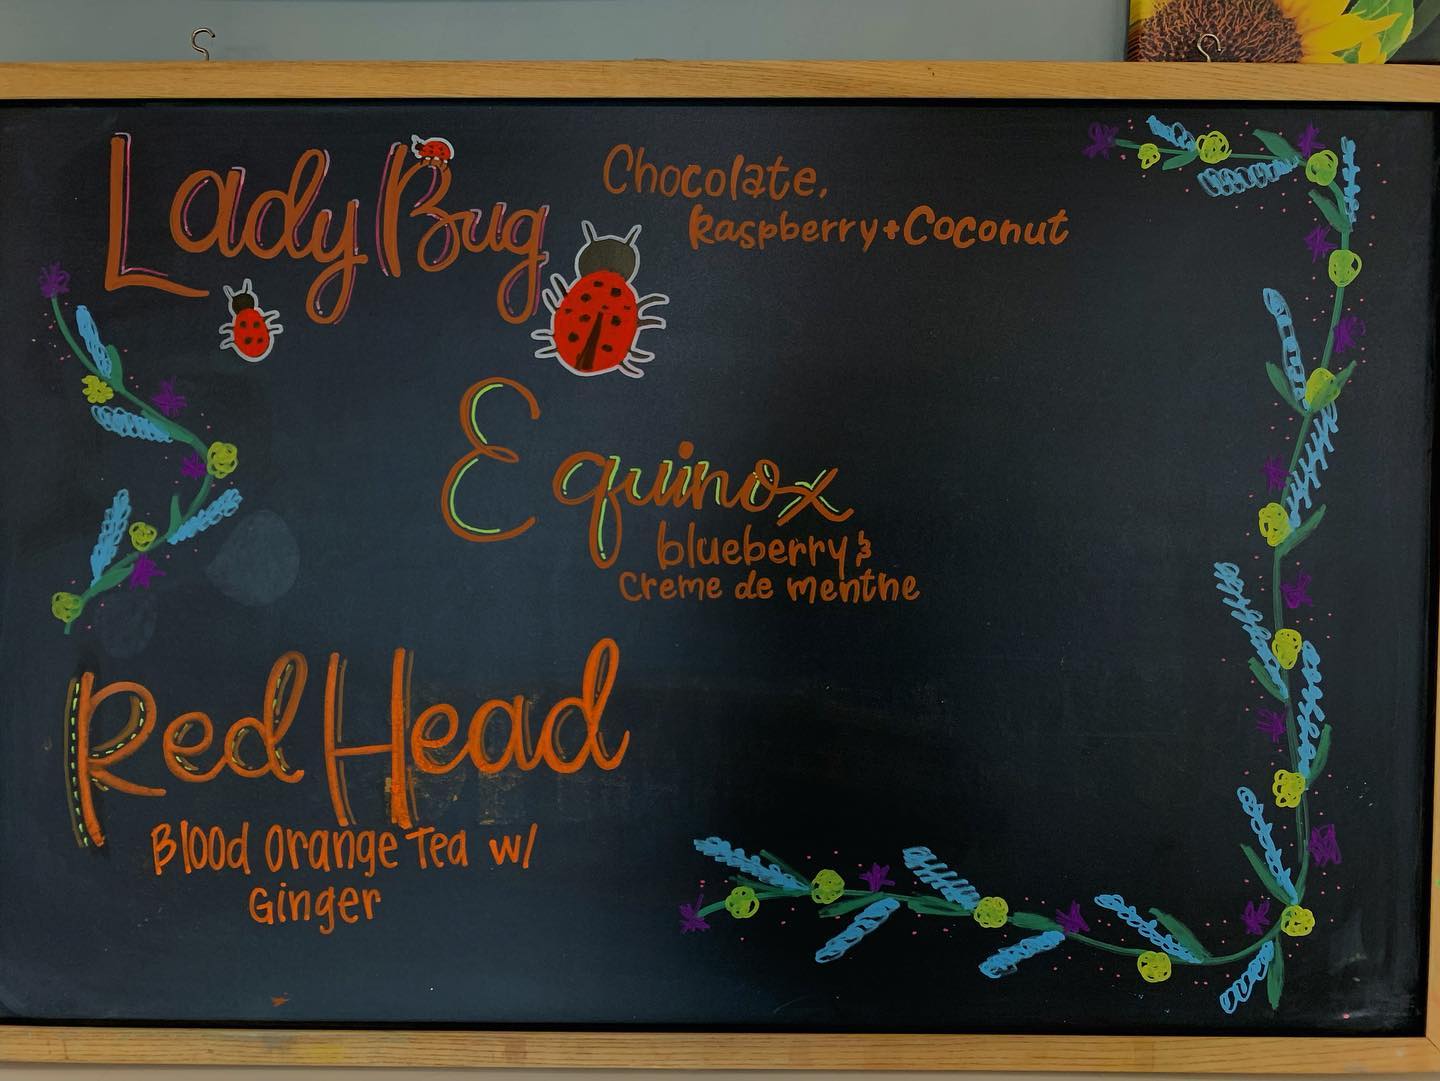 LadyBug
Chocolate,
Raspberry + Coconut
Equinox
blueberry &
Creme de menthe
Red Head
Blood Orange Tea w/
Ginger